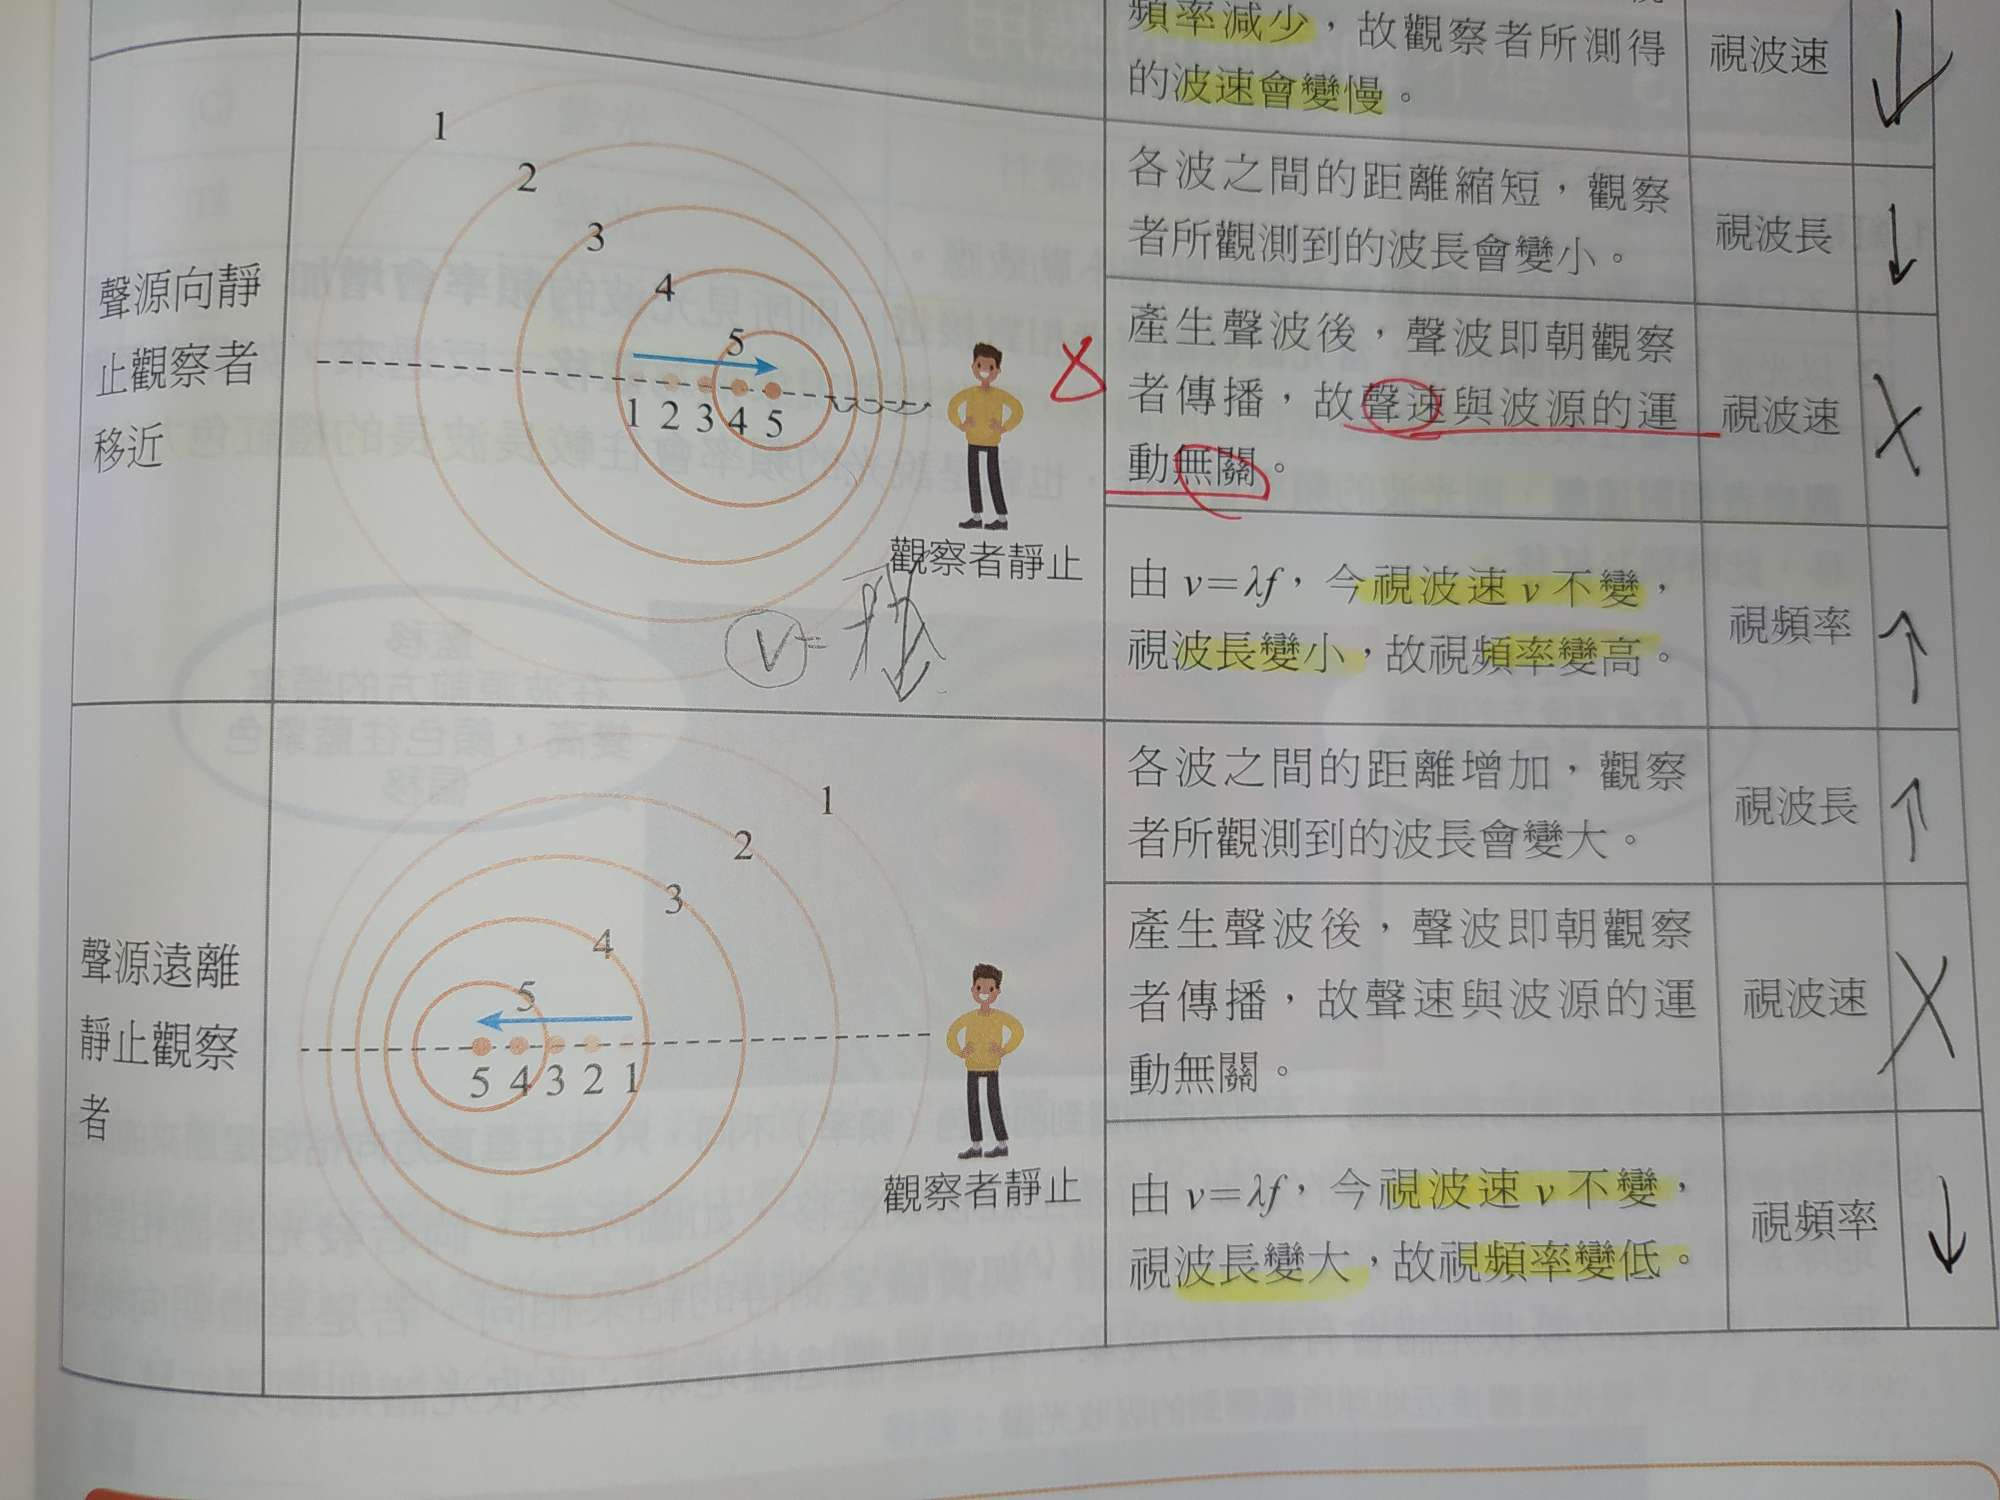 頻率減少，故觀察者所測得
的波速會變慢。
視波速
↓
聲源向靜
止觀察者
移近
1
2
3
4
5
1 2 3 4 5
觀察者靜止
V=
各波之間的距離縮短，觀察
者所觀測到的波長會變小。
視波長
↓
產生聲波後，聲波即朝觀察
者傳播，故聲速與波源的運
動無關。
視波速
X
由 v=λf，今視波速 v 不變，
視波長變小，故視頻率變高。
視頻率
↑
聲源遠離
靜止觀察
者
1
2
3
4
5
5 4 3 2 1
觀察者靜止
各波之間的距離增加，觀察
者所觀測到的波長會變大。
視波長
↑
產生聲波後，聲波即朝觀察
者傳播，故聲速與波源的運
動無關。
視波速
X
由 v=λf，今視波速 v 不變，
視波長變大，故視頻率變低。
視頻率
↓